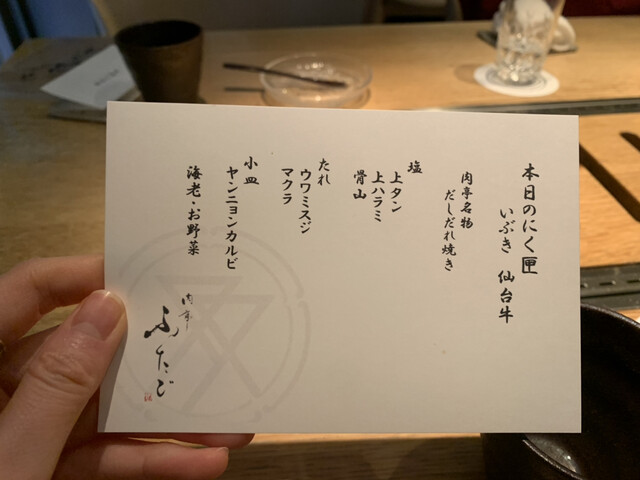 本日のにく匣
いぶき 仙台牛
肉亭名物
だしだれ焼き
塩
上タン
上ハラミ
骨山
たれ
ウワミスジ
マクラ
小皿
ヤンニョンカルビ
海老・お野菜
肉亭
ふたご